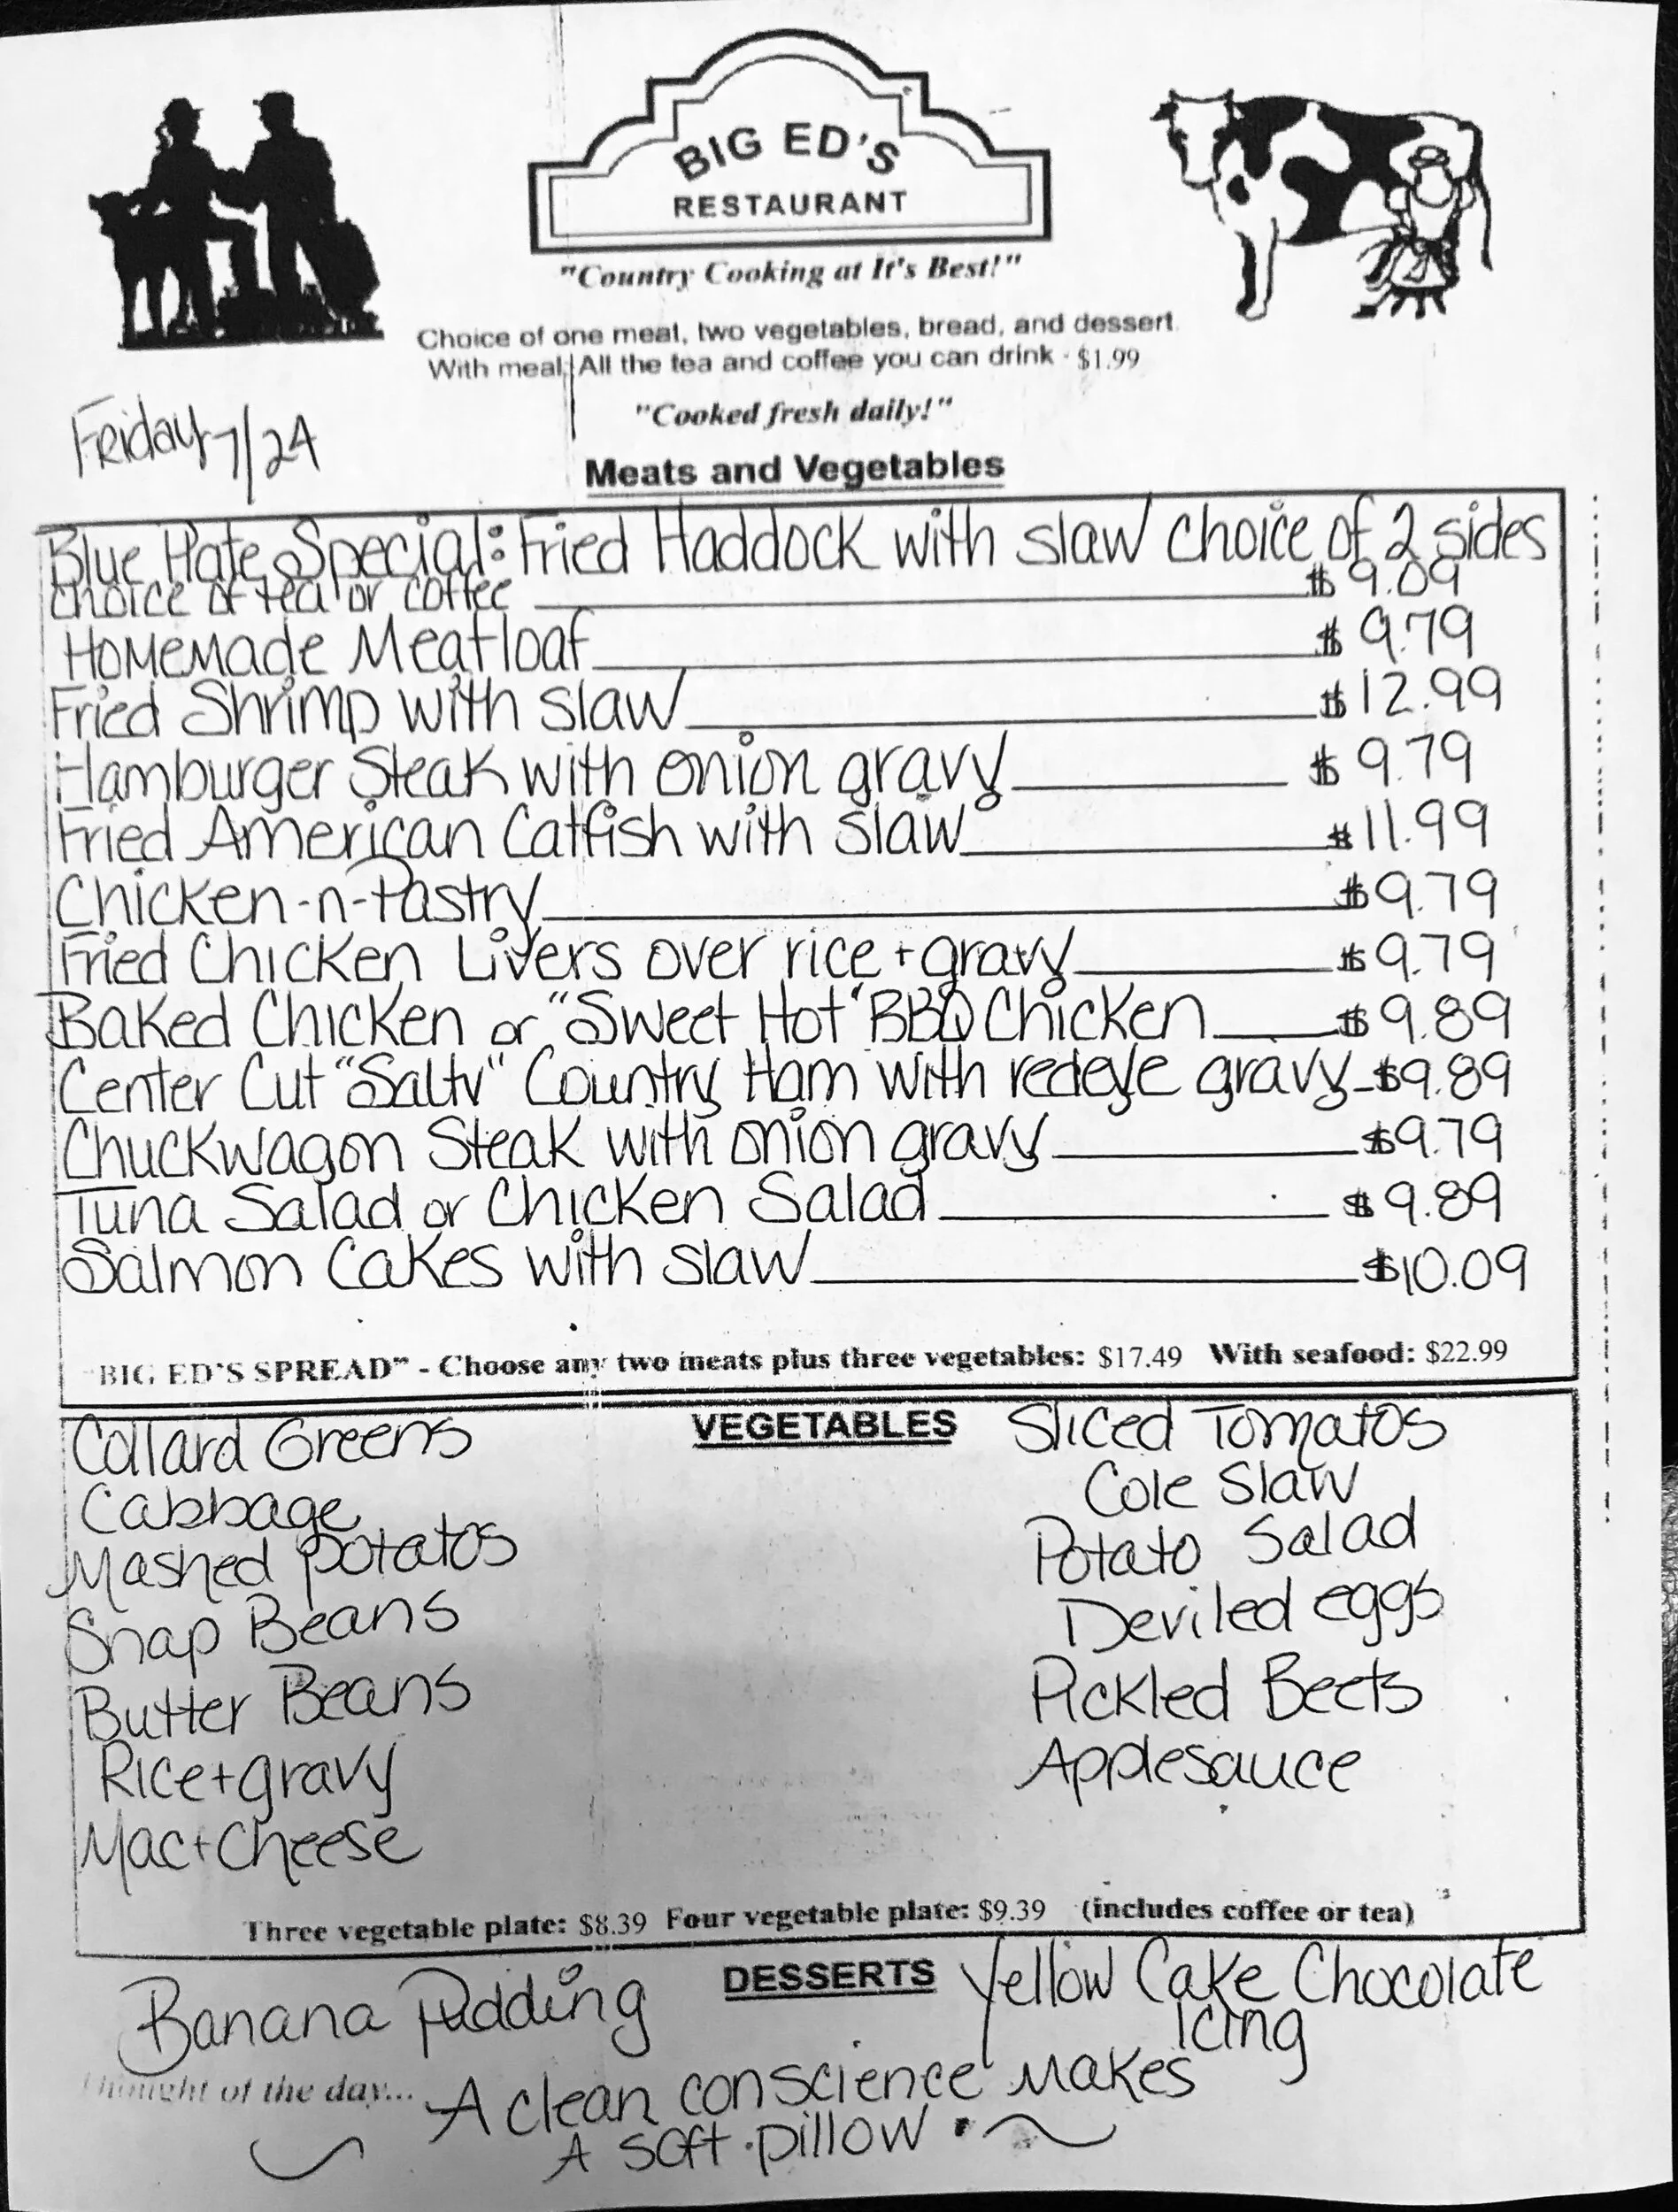 BIG ED'S
RESTAURANT
"Country Cooking at It's Best!"
Choice of one meat, two vegetables, bread, and dessert.
With meal, All the tea and coffee you can drink - $1.99
"Cooked fresh daily!"
Friday 7/24
Meats and Vegetables
Blue Plate Special: Fried Haddock with slaw choice of 2 sides
choice of tea or coffee $ 9.09
Homemade Meatloaf $ 9.79
Fried Shrimp with slaw $ 12.99
Hamburger Steak with onion gravy $ 9.79
Fried American Catfish with slaw $ 11.99
Chicken-n-Pastry $ 9.79
Fried Chicken Livers over rice + gravy $ 9.79
Baked Chicken or "Sweet Hot" BBQ Chicken $ 9.89
Center Cut "Salty" Country Ham with redeye gravy $9.89
Chuckwagon Steak with onion gravy $9.79
Tuna Salad or Chicken Salad $ 9.89
Salmon Cakes with slaw $10.09
"BIG ED'S SPREAD" - Choose any two meats plus three vegetables: $17.49 With seafood: $22.99
VEGETABLES
Collard Greens
Cabbage
Mashed Potatos
Snap Beans
Butter Beans
Rice + gravy
Mac + Cheese
Sliced Tomatos
Cole Slaw
Potato Salad
Deviled eggs
Pickled Beets
Applesauce
Three vegetable plate: $8.39 Four vegetable plate: $9.39 (includes coffee or tea)
DESSERTS
Banana Pudding
Yellow Cake Chocolate
Icing
Thought of the day... A clean conscience makes
A soft pillow.